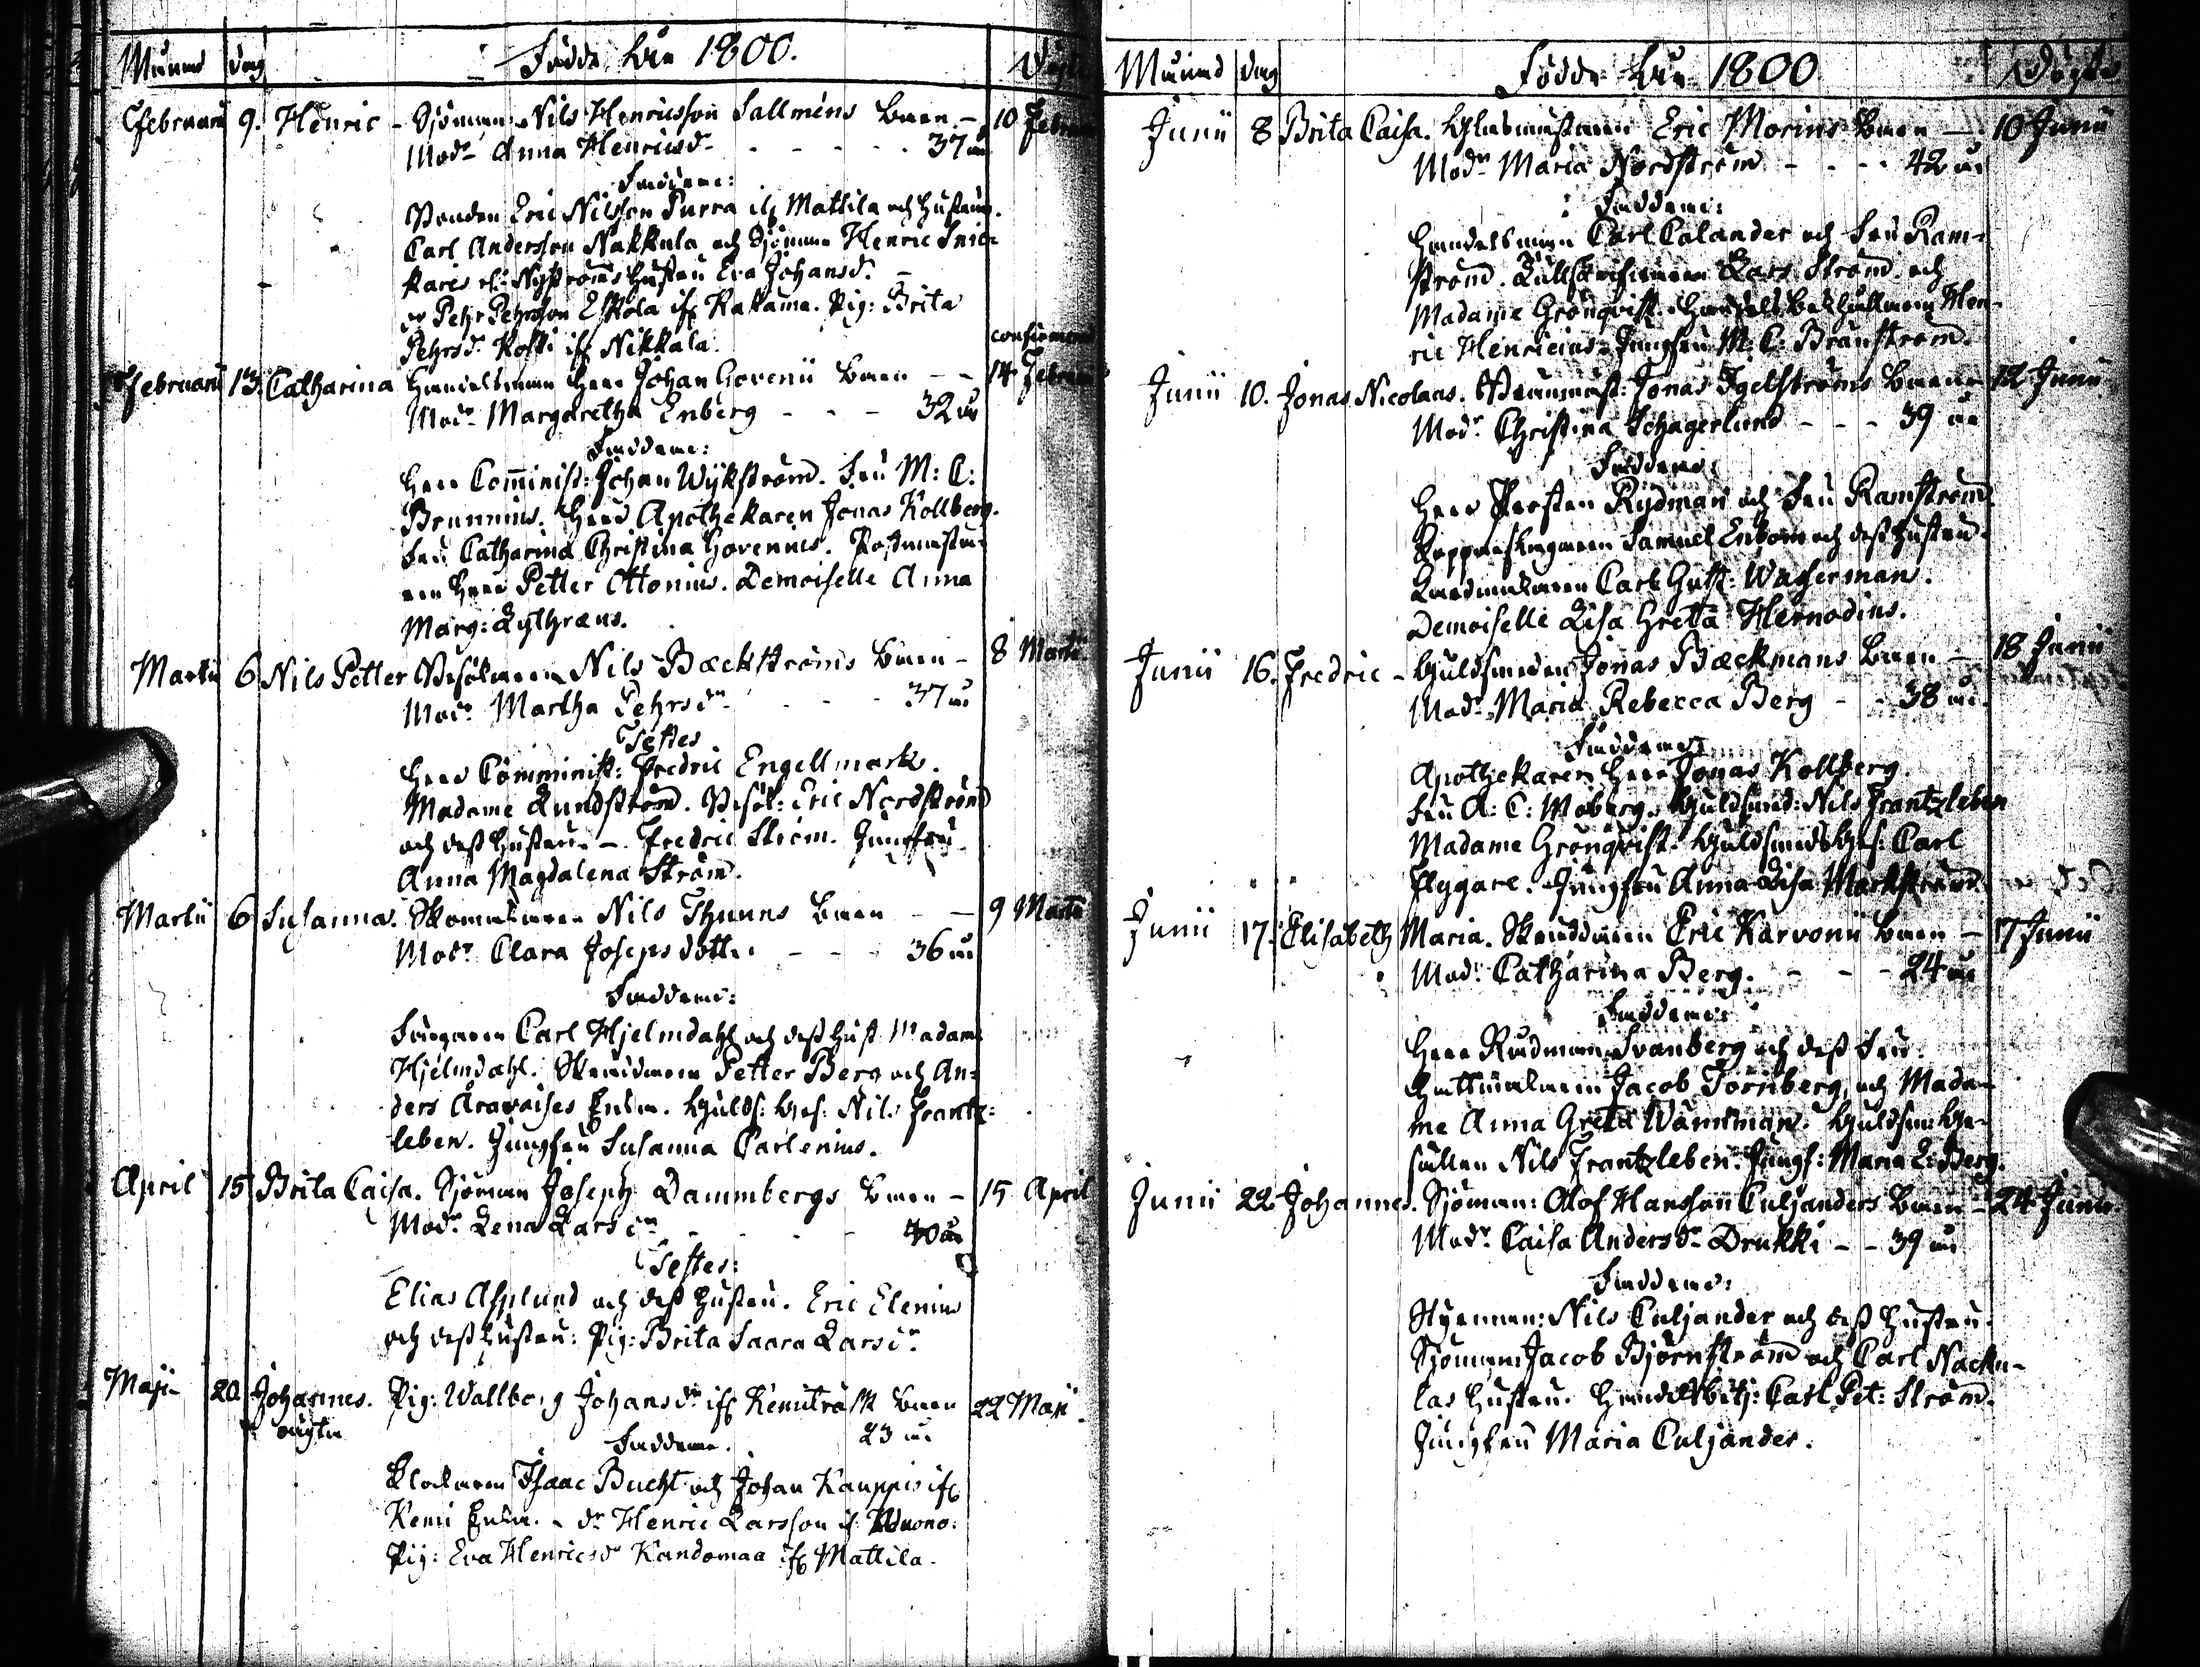 Månad dag Födde År 1800. Döpte
Februarii 9. Henric - Sjöman Nils Henricsson Sallméns Barn - 10 Februarii
Modr Anna Henricsdr - - - - - 37 år
Faddrar:
Bonden Eric Nilsson Purra ifr Mattila och Hustrun.
Carl Andersson Nakkula och Sjöman Henric
Nyströms Hustru Eva Johansdr. -
dr Pehr Pehrsson Eskola ifr Kakama. Pig: Brita
Pehrsdr Koski ifr Nikkala.
confirmerat
Februarii 13. Catharina Handelsman Herr Johan Hovenii Barn - - 14 Februarii
Modr Margaretha Enberg - - - 32 år
Faddrar:
Herr Comminist: Johan Wijkström. Fru M: C:
Brunnius. Herr Apothekaren Jonas Kollberg.
Fru Catharina Christina Hovenius. Postmästa-
ren Herr Petter Ottonius. Demoiselle Anna
Marg: Rythræus.
Martii 6 Nils Petter Nils Bæckströms Barn - 8 Martii
Modr Martha Pehrsdr - - - 37 år
Testes
Herr Comminist: Fredric Engellmark.
Madame Lundström. Eric Nordström
och dess Hustru. - Fredric Ström. Jungfru
Anna Magdalena Ström.
Martii 6 Susanna. Skomakaren Nils Thuuns Barn - - 9 Martii
Modr Clara Josepsdotter - - - 36 år
Faddrar:
Färgaren Carl Hjelmdahl och dess Hust Madam
Hjelmdahl. Skräddaren Petter Berg och An-
ders Aravaises Enka. Gulds: Ges: Nils Frantz-
leben. Jungfru Susanna Carlenius.
April 15 Brita Caisa. Sjöman Joseph Dammbergs Barn - 15 April
Modr Lena Larsdr - - - 40 år
Testes:
Elias Asplund och dess Hustru. Eric Elenius
och dess Hustru: Pig: Brita Saara Larsdr
Maji 20 Johannes. Pig: Wallborg Johansdr ifr Kemiträsk Barn 22 Maji
oägta 23 år
Faddrar.
Klockaren Isaac Bucht och Johan Kauppis ifr
Kemi Enka. - dr Henric Larsson if: Muono:
Pig: Eva Henricsdr Kandomaa ifr Mattila.
Månad dag Födde År 1800 Döpte
Junii 8 Brita Caisa. Glasmästaren Eric Morins Barn - 10 Junii
Modr Maria Nordström - - - 42 år
Faddrar:
Handelsman Carl Calander och Fru Ram-
ström. Lars Ström och
Madame Grönqvist. Handels Bokhållaren Hen-
ric Henricius. Jungfru M: C: Brunström.
Junii 10. Jonas Nicolaus. Jonas Igelströms Barn 12 Junii
Modr Christina Schagerlund - - - 39 år
Faddrar:
Herr Prosten Rydman och Fru Ramström
Kopparslagaren Samuel Enbom och dess Hustru.
Carl Gust: Wagerman.
Demoiselle Lisa Greta Hernodius.
Junii 16. Fredric - Guldsmeden Jonas Bæckmans Barn - 18 Junii
Modr Maria Rebecca Berg - - 38 år
Faddrar:
Apothekaren Herr Jonas Kollberg.
Fru A: C: Moberg. Guldsmed: Nils Frantzleben
Madame Grönqvist. Guldsmeds Ges: Carl
Flygare. Jungfru Anna Lisa Markström.
Junii 17. Elisabeth Maria. Skräddaren Eric Karvonii Barn - 17 Junii
Modr Catharina Berg. - - - 24 år
Faddrar:
Herr Rådman Svanberg och dess Fru.
Hattmakaren Jacob Törnberg, och Mada-
me Anna Greta Wänman. Guldsm: Ge-
sällen Nils Frantzleben. Jungf: Maria E: Berg.
Junii 22 Johannes. Sjöman: Olof Hansson Culjanders Barn - 24 Junii
Modr Caisa Andersdr Drukki - - 39 år
Faddrar:
Styrman: Nils Culjander och dess Hustru.
Sjöman: Jacob Björnström och Carl Nacku-
las Hustru. Handelsbetj: Carl Pet: Ström.
Jungfru Maria Culjander.